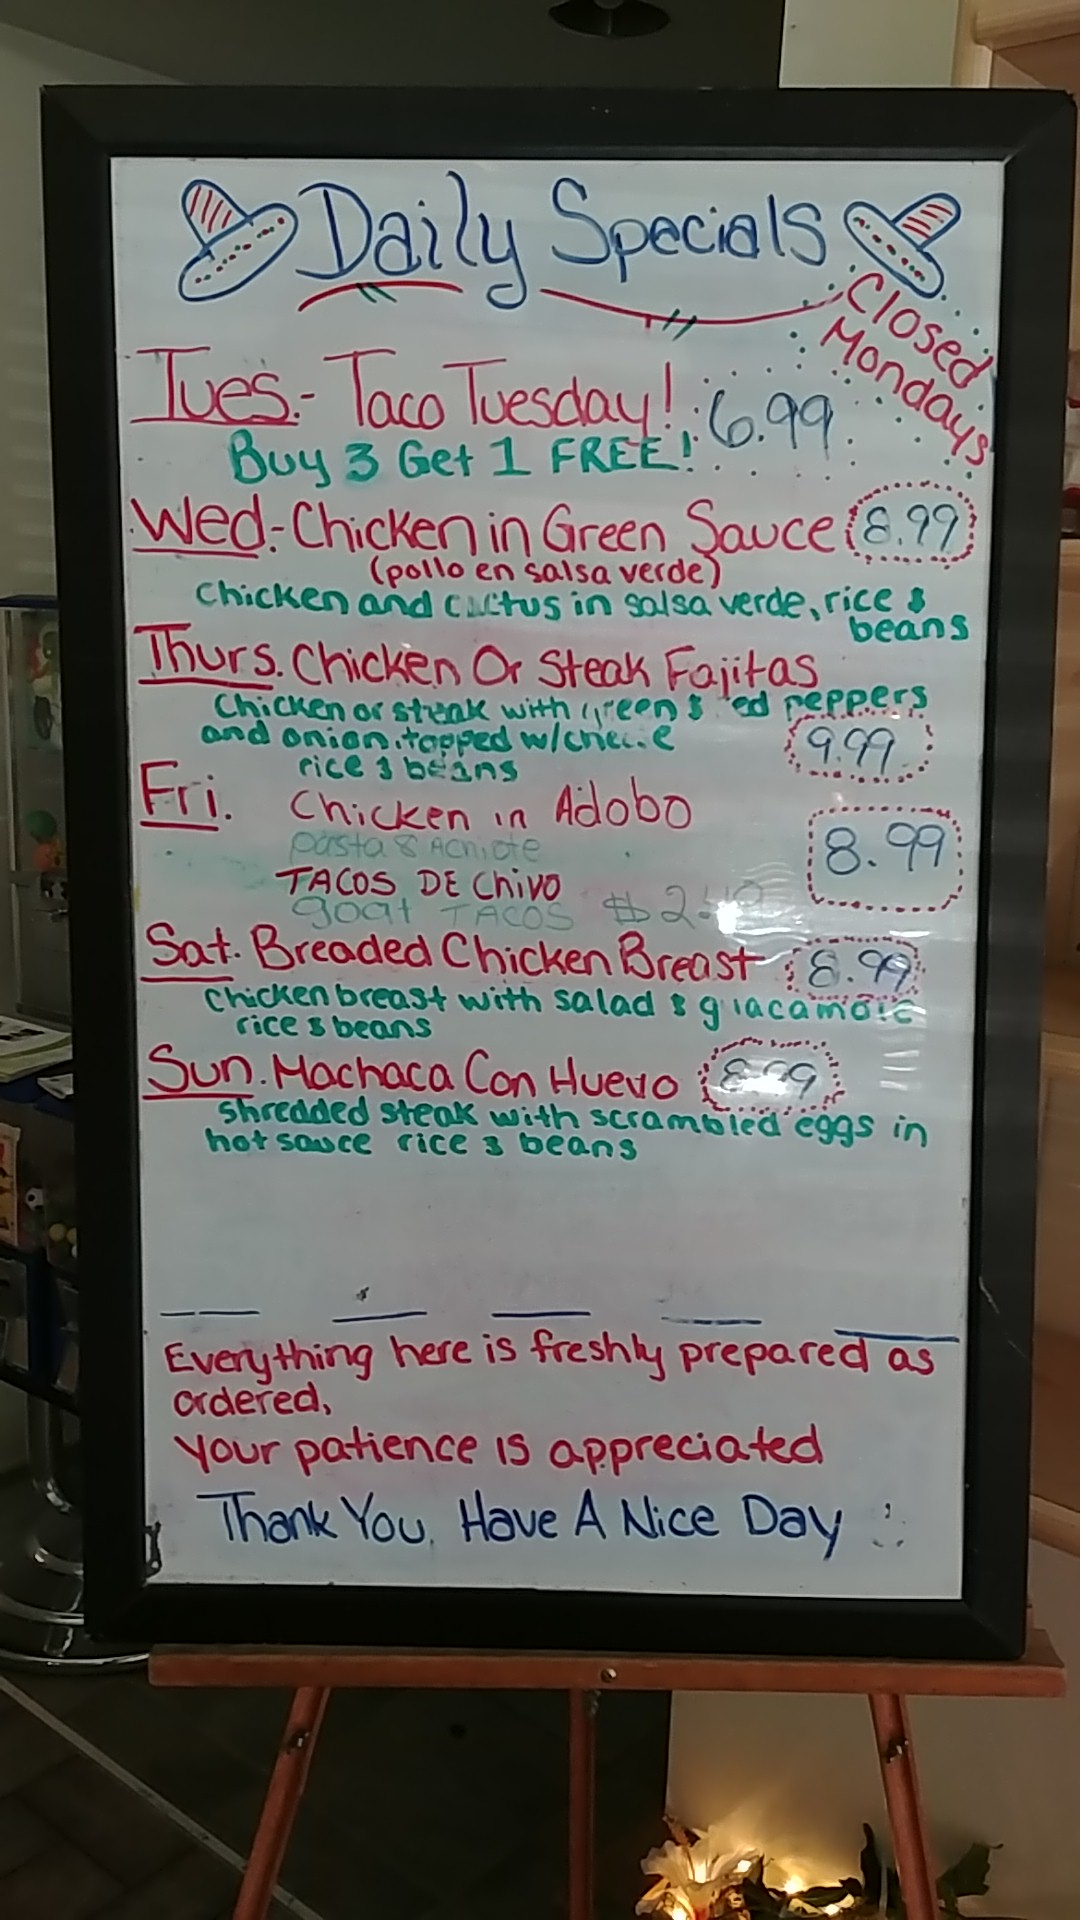 Daily Specials
Closed
Mondays
Tues.- Taco Tuesday! 6.99
Buy 3 Get 1 FREE!
Wed.- Chicken in Green Sauce 8.99
(pollo en salsa verde)
Chicken and cactus in salsa verde, rice &
beans
Thurs. Chicken Or Steak Fajitas
Chicken or steak with green & red peppers
and onion, topped w/cheese 9.99
rice & beans
Fri. Chicken in Adobo
pasta & Achiote 8.99
TACOS DE Chivo
goat TACOS
Sat. Breaded Chicken Breast 8.99
Chicken breast with salad & guacamole
rice & beans
Sun. Machaca Con Huevo 8.99
Shredded steak with scrambled eggs in
hot sauce rice & beans
Everything here is freshly prepared as
ordered,
Your patience is appreciated
Thank You, Have A Nice Day :)